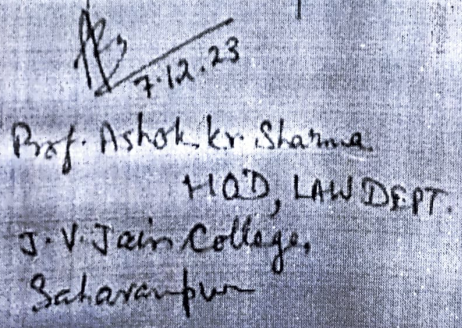 7.12.23
Prof. Ashok kr. Sharma
HOD, LAW DEPT.
J. V. Jain College,
Saharanpur